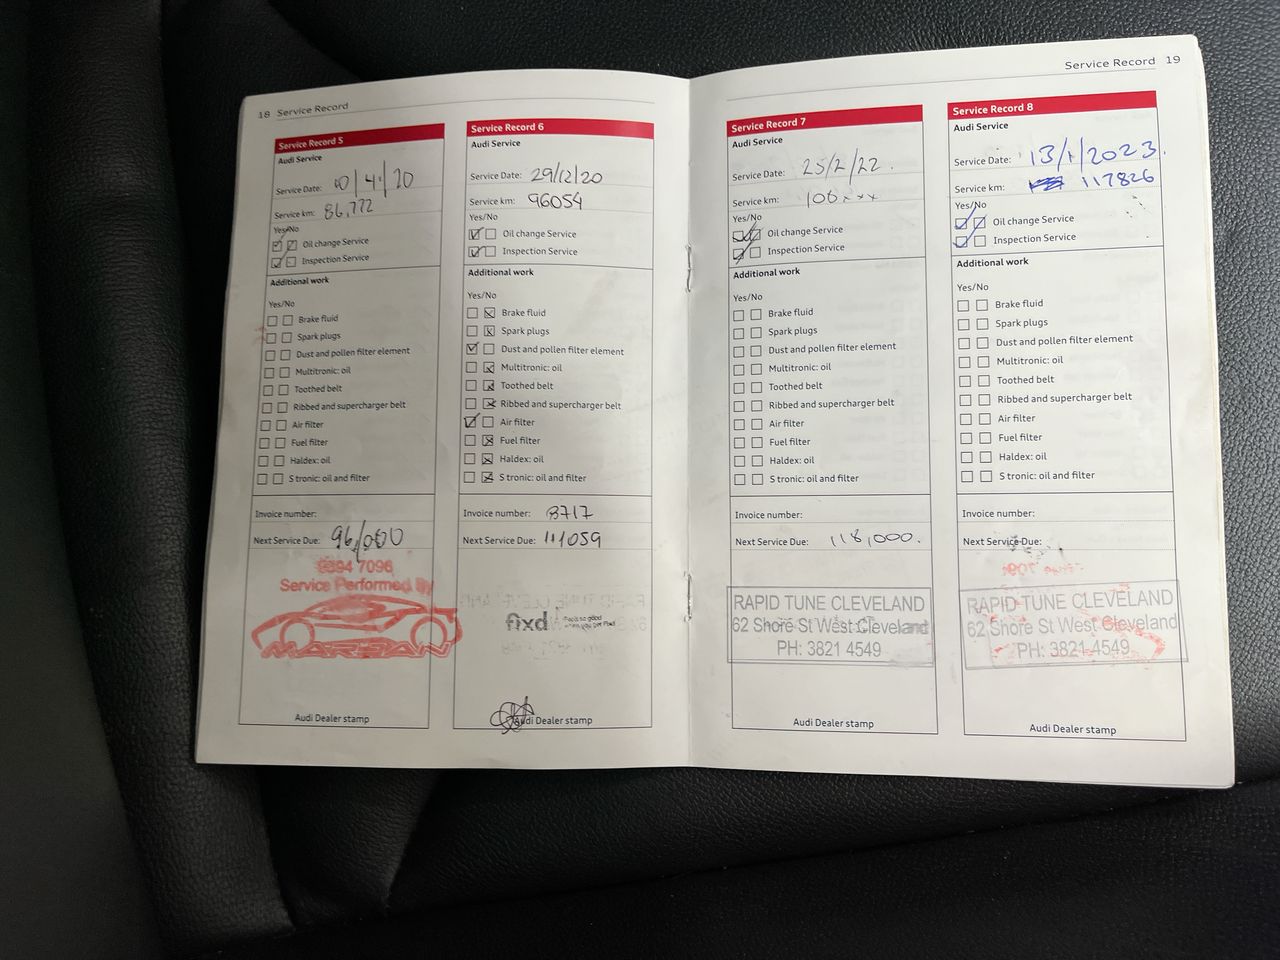 18 Service Record
Service Record 5
Audi Service
Service Date: 10/4/20
Service km: 86,772
Yes/No
Oil change Service
Inspection Service
Additional work
Yes/No
Brake fluid
Spark plugs
Dust and pollen filter element
Multitronic: oil
Toothed belt
Ribbed and supercharger belt
Air filter
Fuel filter
Haldex: oil
S tronic: oil and filter
Invoice number:
Next Service Due: 96,000
7096
Service Performed By
Audi Dealer stamp
Service Record 6
Audi Service
Service Date: 29/12/20
Service km: 96054
Yes/No
Oil change Service
Inspection Service
Additional work
Yes/No
Brake fluid
Spark plugs
Dust and pollen filter element
Multitronic: oil
Toothed belt
Ribbed and supercharger belt
Air filter
Fuel filter
Haldex: oil
S tronic: oil and filter
Invoice number: 8717
Next Service Due: 111059
fixd
Audi Dealer stamp
Service Record 19
Service Record 7
Audi Service
Service Date: 25/2/22.
Service km: 106xxx
Yes/No
Oil change Service
Inspection Service
Additional work
Yes/No
Brake fluid
Spark plugs
Dust and pollen filter element
Multitronic: oil
Toothed belt
Ribbed and supercharger belt
Air filter
Fuel filter
Haldex: oil
S tronic: oil and filter
Invoice number:
Next Service Due: 118,000.
RAPID TUNE CLEVELAND
62 Shore St West Cleveland
PH: 3821 4549
Audi Dealer stamp
Service Record 8
Audi Service
Service Date: 13/1/2023.
Service km: 117826
Yes/No
Oil change Service
Inspection Service
Additional work
Yes/No
Brake fluid
Spark plugs
Dust and pollen filter element
Multitronic: oil
Toothed belt
Ribbed and supercharger belt
Air filter
Fuel filter
Haldex: oil
S tronic: oil and filter
Invoice number:
Next Service Due:
RAPID TUNE CLEVELAND
62 Shore St West Cleveland
PH: 3821 4549
Audi Dealer stamp